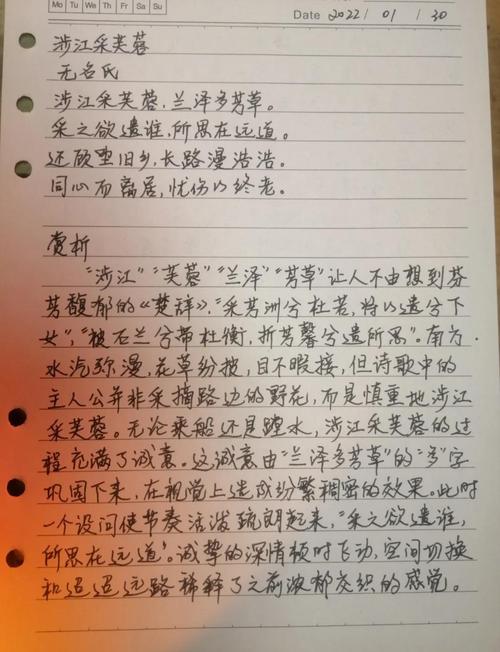 Mo Tu We Th Fr Sa Su
Date 2022 / 01 / 30
涉江采芙蓉
无名氏
涉江采芙蓉,兰泽多芳草。
采之欲遗谁,所思在远道。
还顾望旧乡,长路漫浩浩。
同心而离居,忧伤以终老。
赏析
“涉江”“芙蓉”“兰泽”“芳草”让人不由想到芬
芳馥郁的《楚辞》,“采芳洲兮杜若,将以遗兮下
女”,“被石兰兮带杜衡,折芳馨兮遗所思”。南方
水汽弥漫,花草纷披,目不暇接,但诗歌中的
主人公并非采摘路边的野花,而是慎重地涉江
采芙蓉。无论乘船还是蹚水,涉江采芙蓉的过
程充满了诚意。这诚意由“兰泽多芳草”的“多”字
巩固下来,在视觉上造成纷繁稠密的效果。此时
一个设问使节奏活泼疏朗起来,“采之欲遗谁,
所思在远道”。诚挚的深情顿时飞动,空间切换
和迢迢远路稀释了之前浓郁交织的感觉。